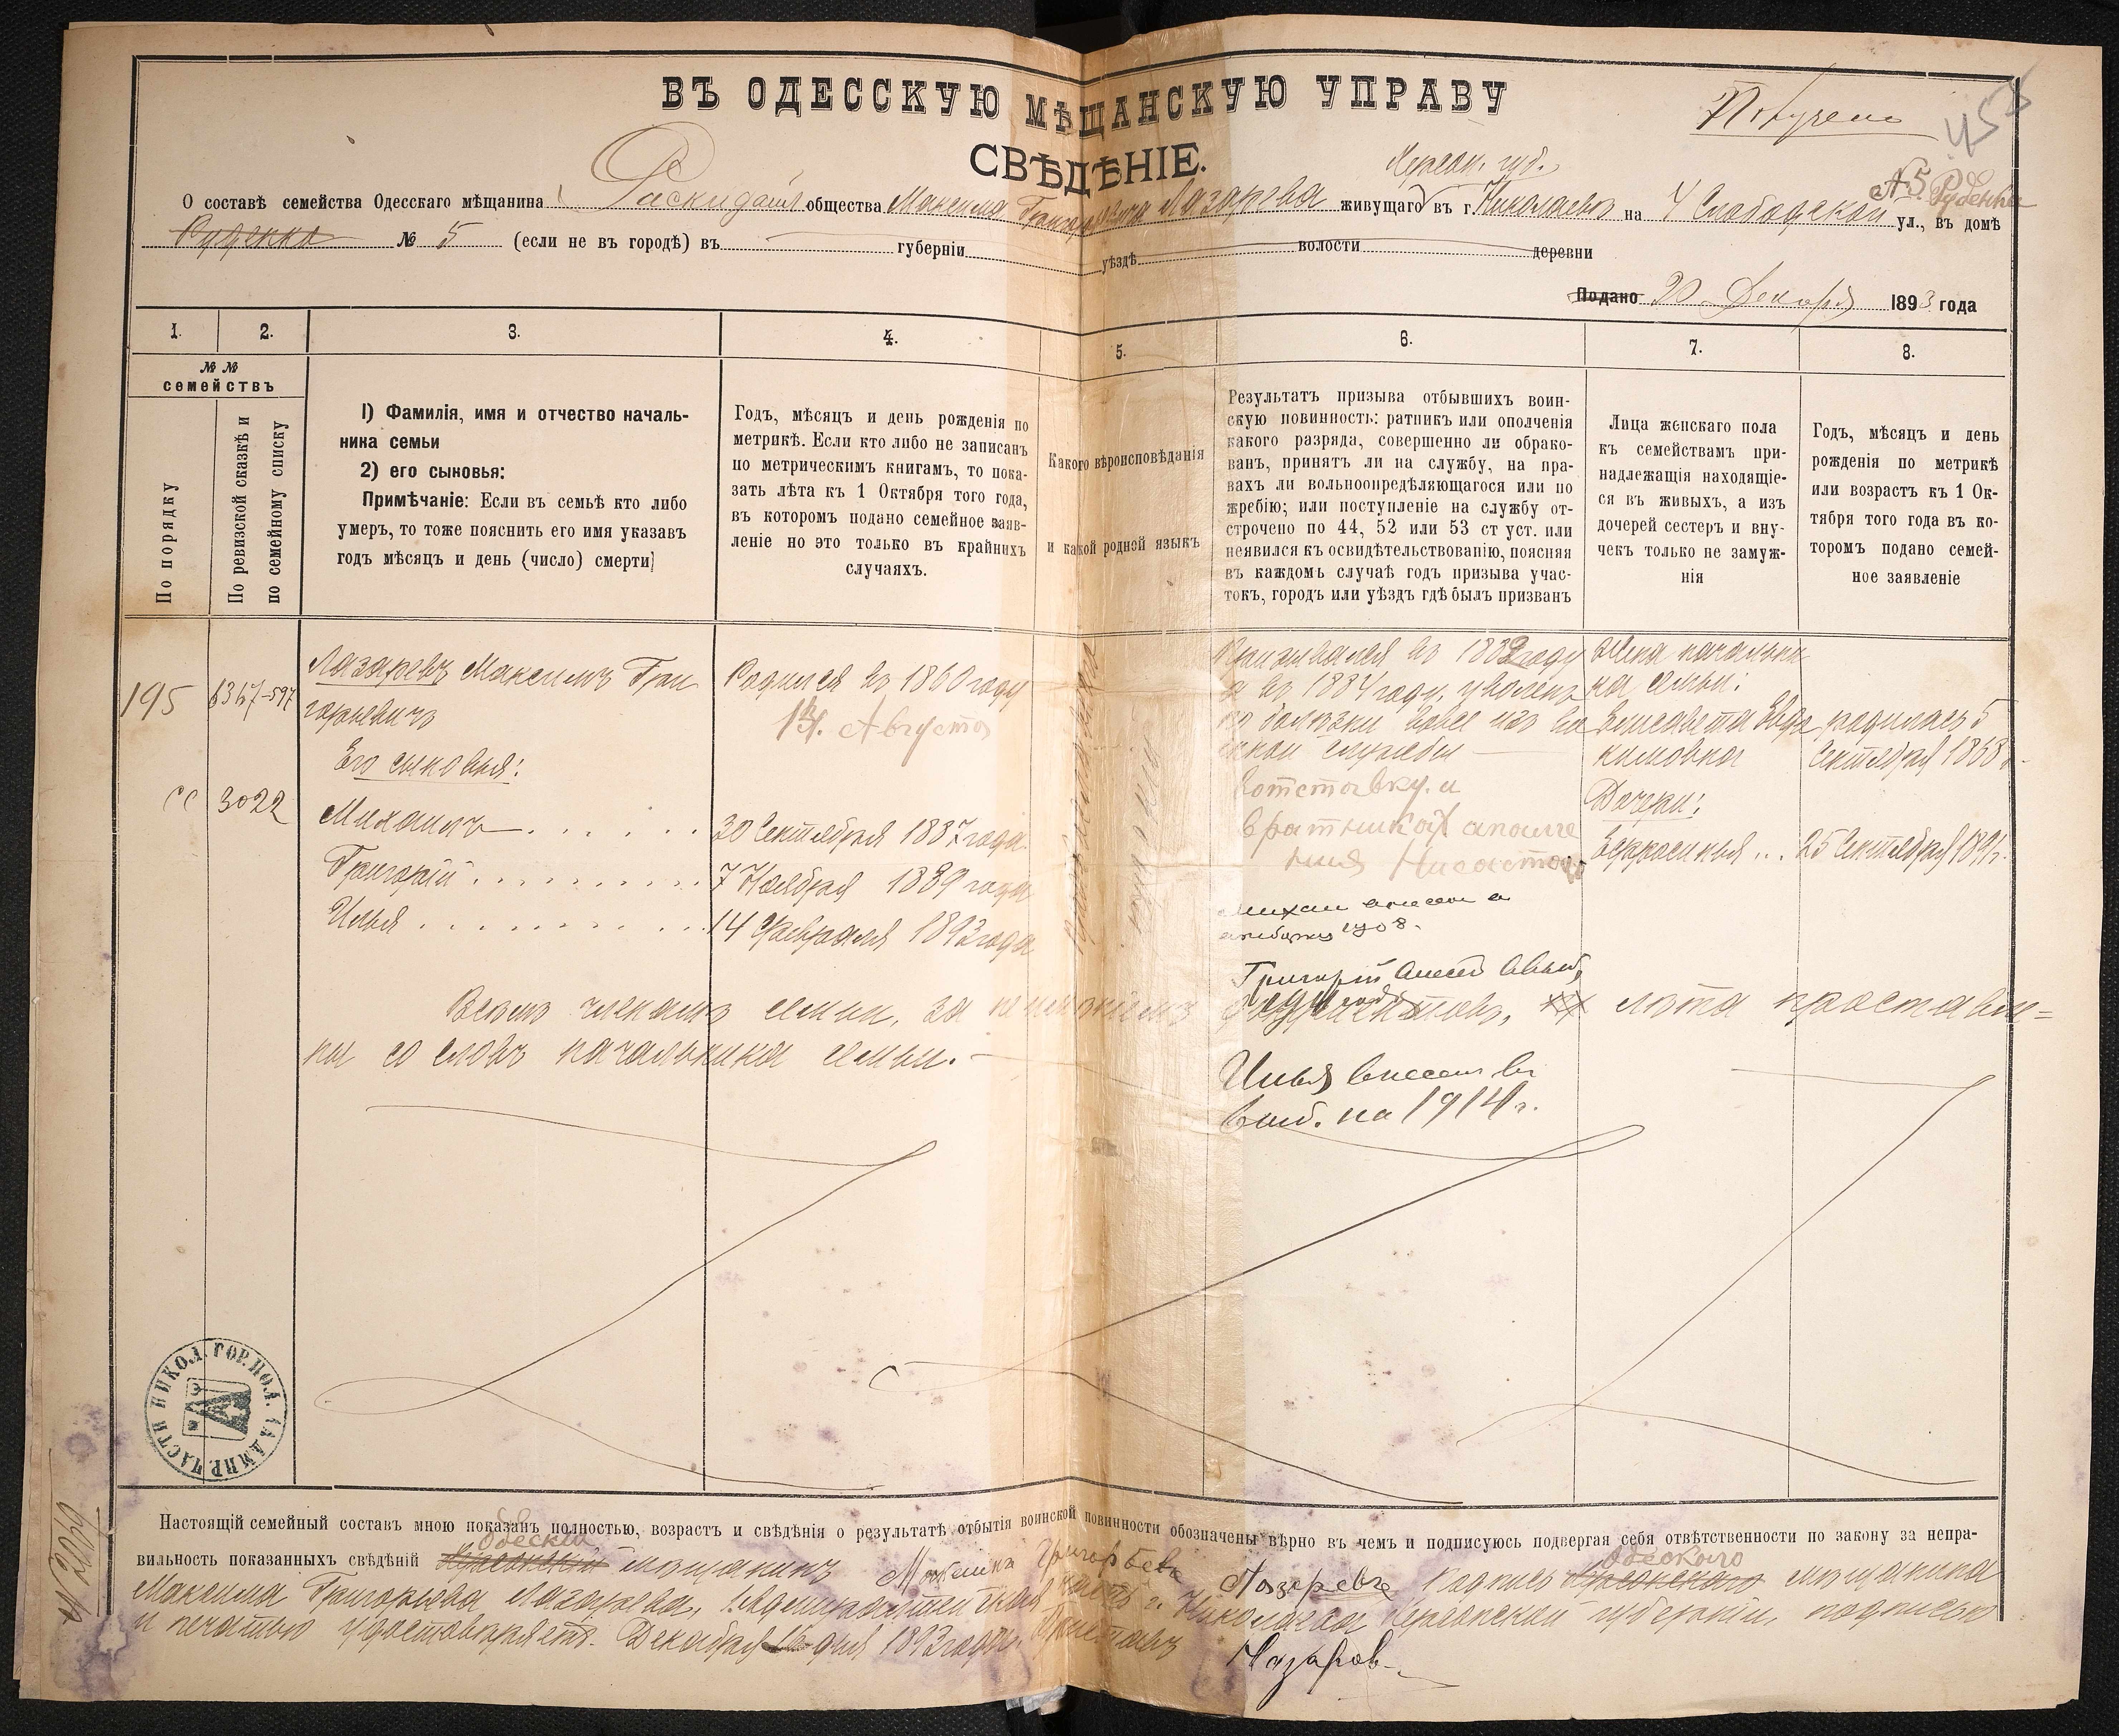 ВЪ ОДЕССКУЮ МѢЩАНСКУЮ УПРАВУ
СВѢДѢНІЕ.
Херсон. губ.
О составѣ семейства Одесскаго мѣщанина общества Максима Григорьевича Лазарева живущаго въ г. Николаевѣ на 4 Слободской ул., въ домѣ
№ 5 Руденка
Руденко № 5 (если не въ городѣ) въ губерніи уѣздѣ волости деревни
Подано 20 Декабря 1893 года
1. 2. 3. 4. 5. 6. 7. 8.
№ №
семействъ
По порядку
По ревизской сказкѣ и
по семейному списку
1) Фамилія, имя и отчество началь-
ника семьи
2) его сыновья:
Примѣчаніе: Если въ семьѣ кто либо
умеръ, то тоже пояснить его имя указавъ
годъ мѣсяцъ и день (число) смерти
Годъ, мѣсяцъ и день рожденія по
метрикѣ. Если кто либо не записанъ
по метрическимъ книгамъ, то пока-
зать лѣта къ 1 Октября того года,
въ которомъ подано семейное заяв-
леніе но это только въ крайнихъ
случаяхъ.
Какого вѣроисповѣданія
и какой родной языкъ
Результатъ призыва отбывшихъ воин-
скую повинность: ратникъ или ополченія
какого разряда, совершенно ли обрако-
ванъ, принятъ ли на службу, на пра-
вахъ ли вольноопредѣляющагося или по
жребію; или поступленіе на службу от-
строчено по 44, 52 или 53 ст уст. или
неявился къ освидѣтельствованію, поясняя
въ каждомъ случаѣ годъ призыва учас-
токъ, городъ или уѣздъ гдѣ былъ призванъ
Лица женскаго пола
къ семействамъ при-
надлежащія находящіе-
ся въ живыхъ, а изъ
дочерей сестеръ и вну-
чекъ только не замуж-
нія
Годъ, мѣсяцъ и день
рожденія по метрикѣ
или возрастъ къ 1 Ок-
тября того года въ ко-
торомъ подано семей-
ное заявленіе
195
6367-597
3022
Лазаревъ Максимъ Гри
горьевичъ
Его сыновья:
Михаилъ . . . . .
Григорій . . . . . . . . .
Илья . . . . . . . . . .
Родился въ 1860 году
14. Августа
30 Сентября 1887 года
7 Ноября 1889 года
14 Февраля 1893 года
православнаго
Призывался въ 1882 году
и въ 1884 году, уволенъ
по болѣзни вовсе изъ во
инской службы
вотставку. и
1908.
Григорій внесен в выб.
Илья внесен въ
выб. на 1914 г.
Жена начальни
ка семьи:
Елисавета Евдо
кимовна
Дочери:
Евфросинья ...
родилась 5
Сентября 1868 г.
25 Сентября 1891 г.
Всѣмъ членамъ семьи, за неимѣніемъ документовъ, лѣта проставле=
ны со словъ начальника семьи.
НИКОЛ. ГОР. ПОЛ. АДМИР. ЧАСТИ
Настоящій семейный составъ мною показанъ полностью, возрастъ и свѣдѣнія о результатѣ отбытія воинской повинности обозначены вѣрно въ чемъ и подписуюсь подвергая себя отвѣтственности по закону за непра-
вильность показанныхъ свѣдѣній Одескій мѣщанинъ Максимъ Григорьевъ Лазаревъ Подпись Одескаго мѣщанина
Максима Григорьева Лазарева, Адмиралтейская часть г. Николаева Херсонской губерніи, подписью
и печатью удостовѣряетъ. Декабря 16 дня 1893 года. Приставъ
Назаров